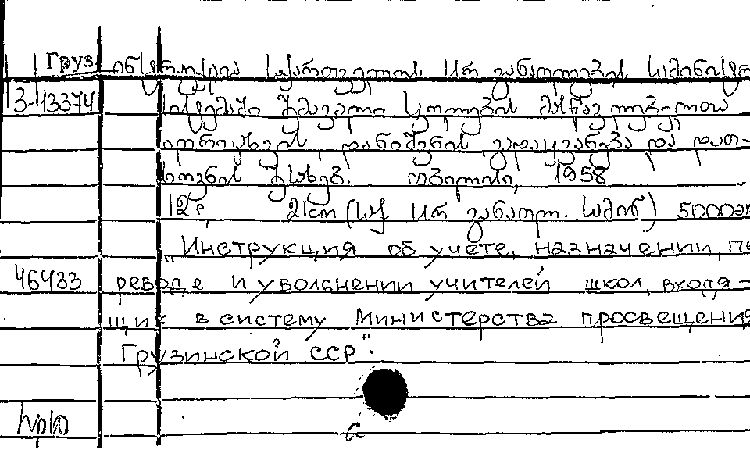 Груз. ინსტრუქცია საქართველოს სსრ განათლების სამინისტ
3-13374 სისტემაში შემავალი სკოლების მასწავლებელთა
აღრიცხვის, დანიშვნის, გადაყვანისა და დათ-
ხოვნის შესახებ. თბილისი, 1958.
12 გვ. 21 cm (საქ. სსრ განათლ. სამინ) 5000
"Инструкция об учете, назначении, пе
46433 реводе и увольнении учителей школ, входя-
щих в систему Министерства просвещения
Грузинской ССР".